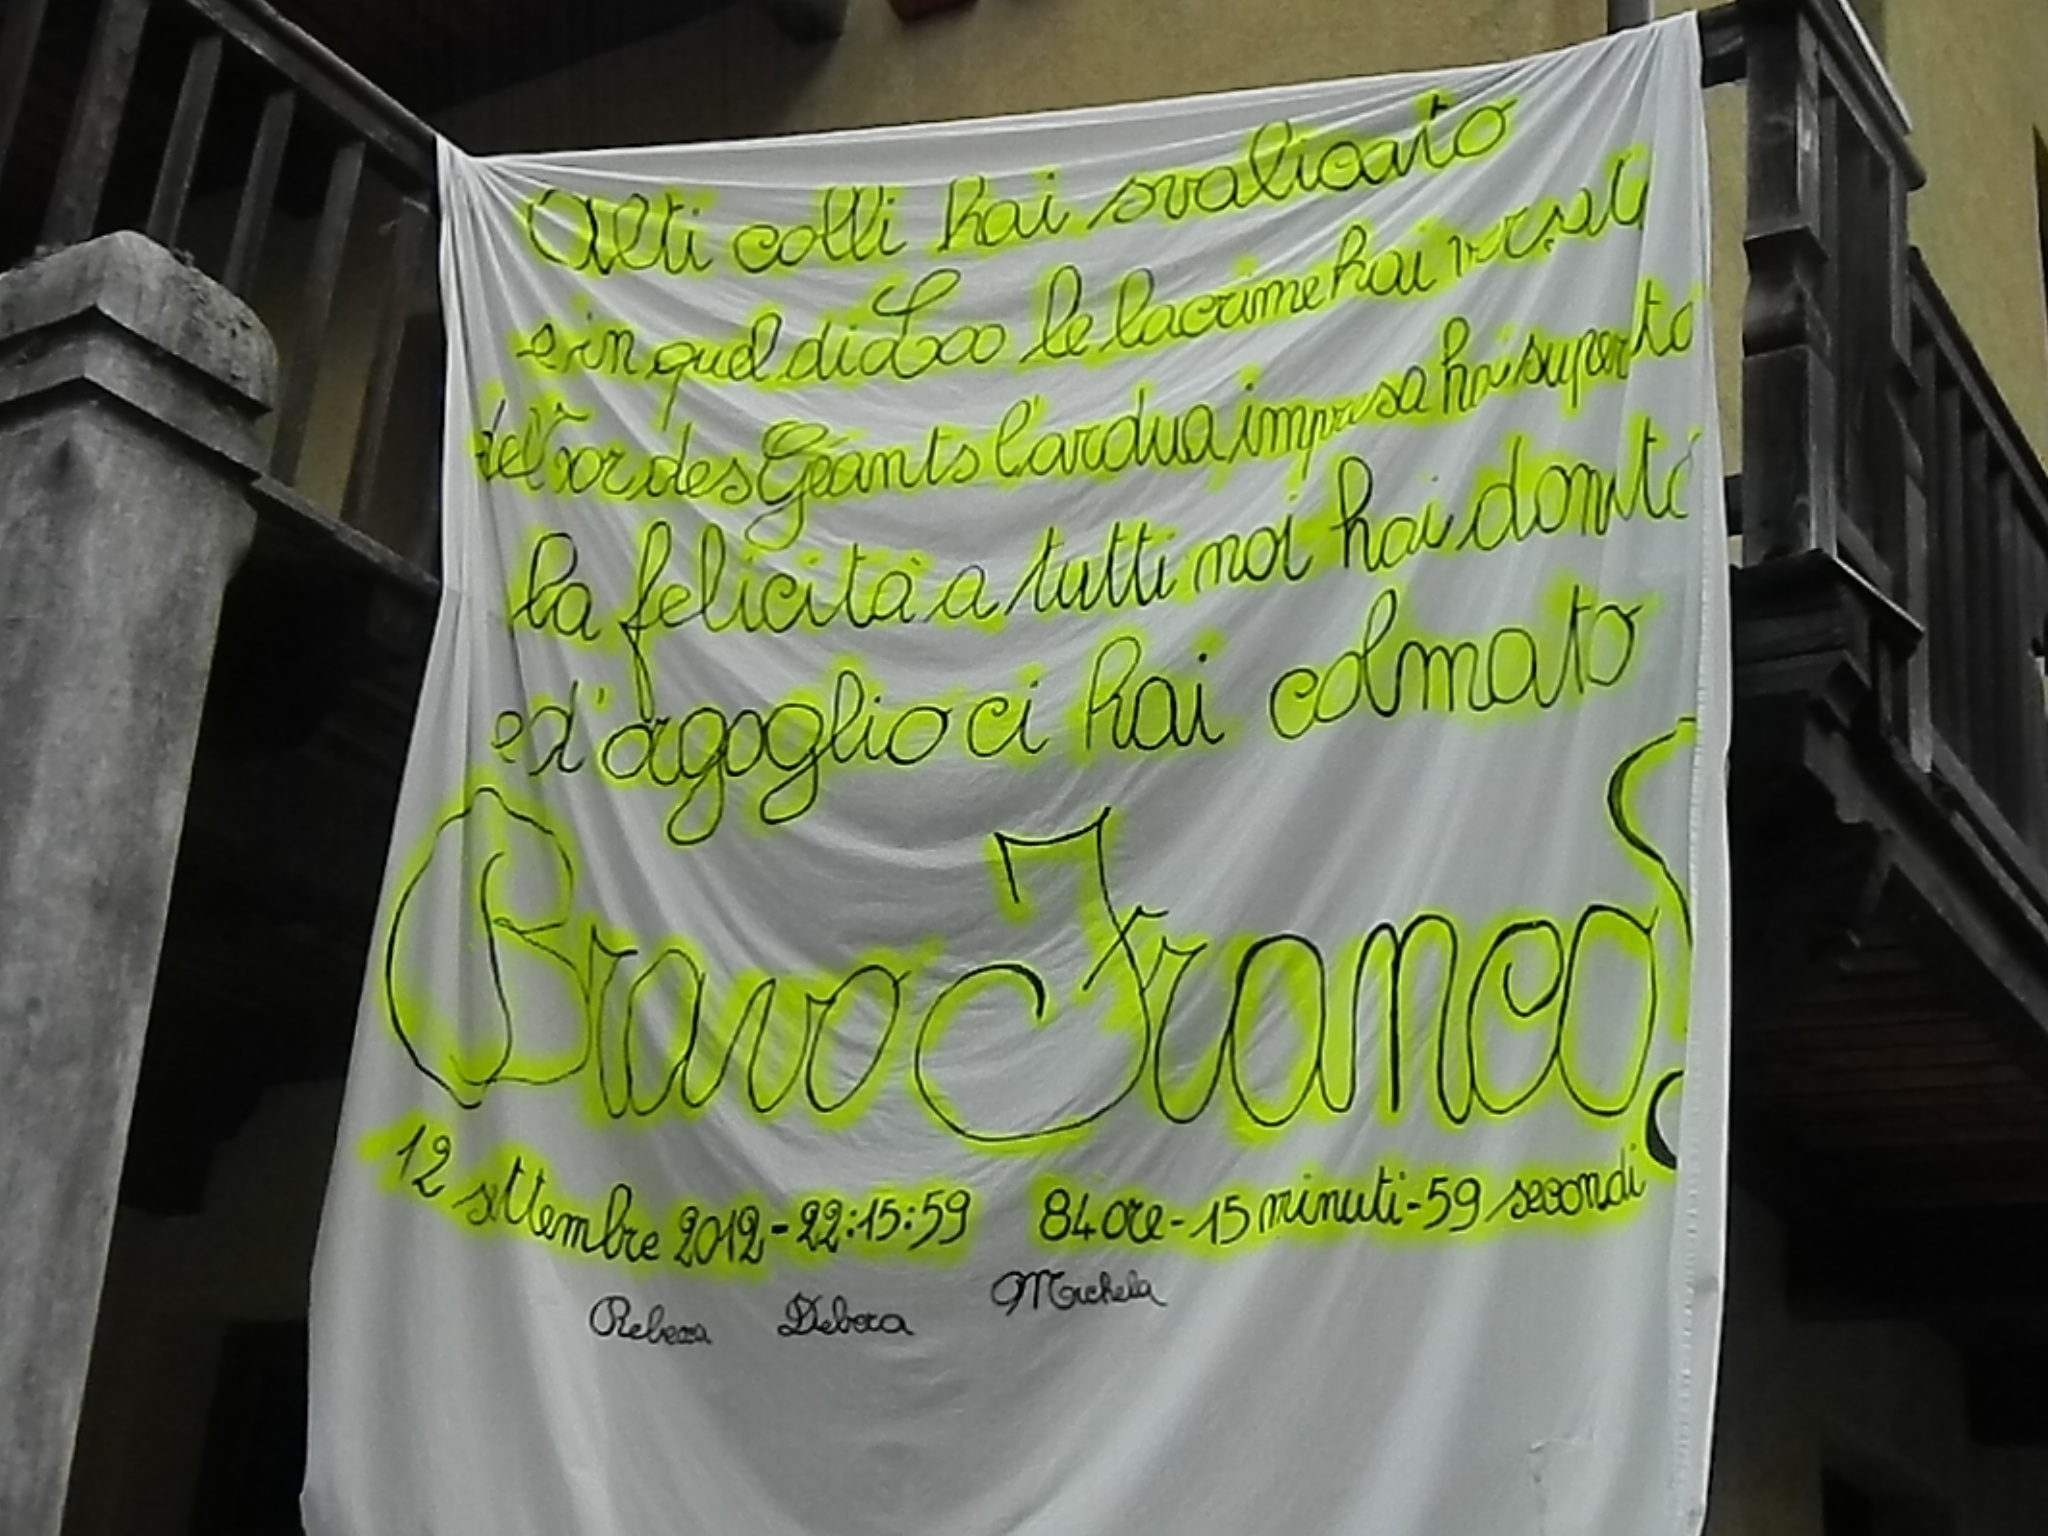 Alti colli hai svalicato
e in quel di Loo le lacrime hai versato
del Tor des Géants l'ardua impresa hai superato
la felicità a tutti noi hai donato
e d'orgoglio ci hai colmato
Bravo Franco!
12 settembre 2012 - 22:15:59 84 ore - 15 minuti - 59 secondi
Rebecca Debora Michela